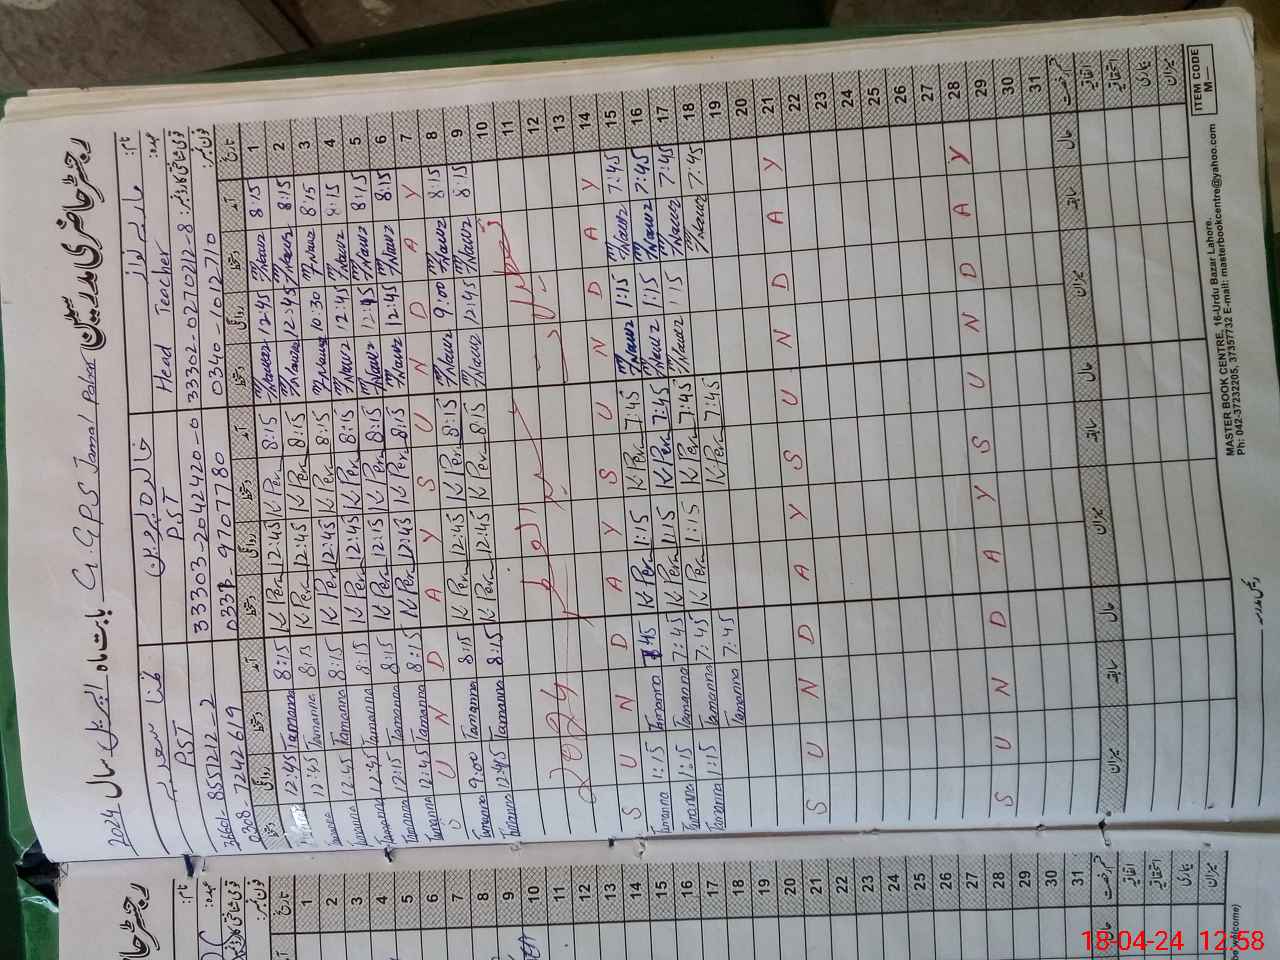 رجسٹر حاضری مدرسین بابت ماہ اپریل سال 2024
G.GPS Jamal Patra
نام:
عہدہ: Head Teacher PST PST
قومی شناختی کارڈ نمبر: 33302-0270212-8 33303-2042420-0
فون نمبر: 0340-1012710
0308-7242619
تاریخ آمد دستخط روانگی دستخط آمد دستخط روانگی دستخط آمد دستخط روانگی دستخط
1 8:15 Nawz 12:45 Nawaz 8:15 K Per 12:45 K Per 8:15 Tamanna 12:45
2 8:15 Nawz 12:45 Nawaz 8:15 K Per 12:45 K Per 8:15 Tamanna 12:45
3 8:15 Nawz 10:30 Nawz 8:15 K Per 12:45 K Per 8:15 Tamanna 12:45
4 8:15 Nawz 12:45 Nawz 8:15 K Per 12:45 K Per 8:15 Tamanna 12:45 Tamanna
5 8:15 Nawz 12:45 Nawz 8:15 K Per 12:15 K Per 8:15 Tamanna 12:15 Tamanna
6 8:15 Nawz 12:45 Nawz 8:15 K Per 12:45 K Per 8:15 Tamanna 12:45 Tamanna
7 Y A D N U S Y A D N U S
8 8:15 Nawz 9:00 Nawz 8:15 K Per 12:45 K Per 8:15 Tamanna 9:00 Tamanna
9 8:15 Nawz 12:45 Nawz 8:15 K Per 12:45 K Per 8:15 Tamanna 12:45 Tamanna
10
11
12
13
14 Y A D N U S Y A D N U S
15 7:45 Nawz 1:15 Nawz 7:45 K Per 1:15 K Per 7:45 Tamanna 1:15 Tamanna
16 7:45 Nawz 1:15 Nawz 7:45 K Per 1:15 K Per 7:45 Tamanna 1:15 Tamanna
17 7:45 Nawz 1:15 Nawz 7:45 K Per 1:15 K Per 7:45 Tamanna 1:15 Tamanna
18 7:45 Nawz 7:45 K Per 7:45 Tamanna
19
20
21 Y A D N U S Y A D N U S
22
23
24
25
26
27
28 Y A D N U S Y A D N U S
29
30
31
حال سابقہ میزان حال سابقہ میزان حال سابقہ میزان
اتفاقیہ
میزان
ITEM CODE
M—
MASTER BOOK CENTRE, 16-Urdu Bazar Lahore.
Ph: 042-37232205, 37357732 E-mail: masterbookcentre@yahoo.com
نام:
عہدہ:
تاریخ
آمد
1
2
3
4
5
6
7
8
9
10
11
12
13
14
15
16
17
18
19
20
21
22
23
24
25
26
27
28
29
30
31
اتفاقیہ
میزان
18-04-24 12:58